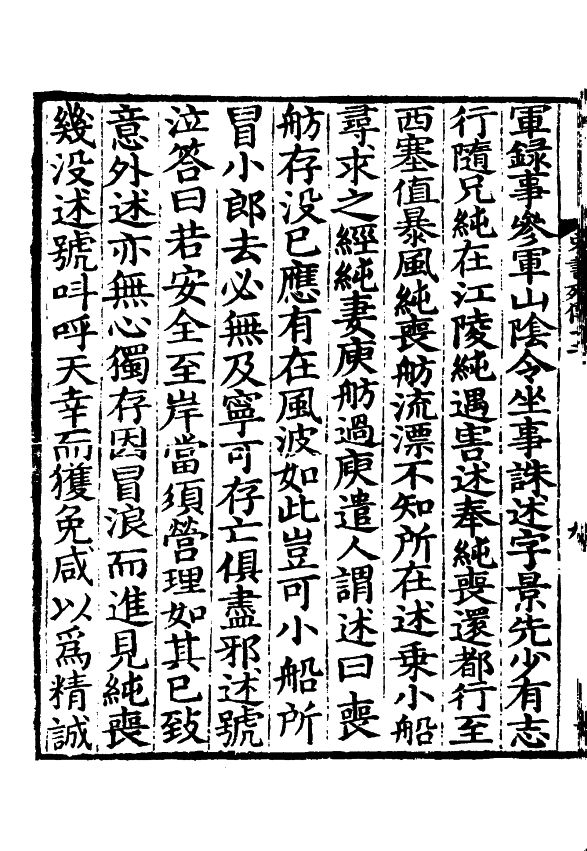 軍録事參軍山陰令坐事誅述字景先少有志
行隨兄純在江陵純遇害述奉純喪還都行至
西塞值暴風純喪舫流漂不知所在述乗小船
尋求之經純妻庾舫過庾遣人謂述曰喪
舫存没已應有在風波如此豈可小船所
冒小郎去必無及寧可存亡俱盡邪述號
泣答曰若安全至岸當須營理如其已致
意外述亦無心獨存因冒浪而進見純喪
幾没述號叫呼天幸而獲免咸以爲精誠